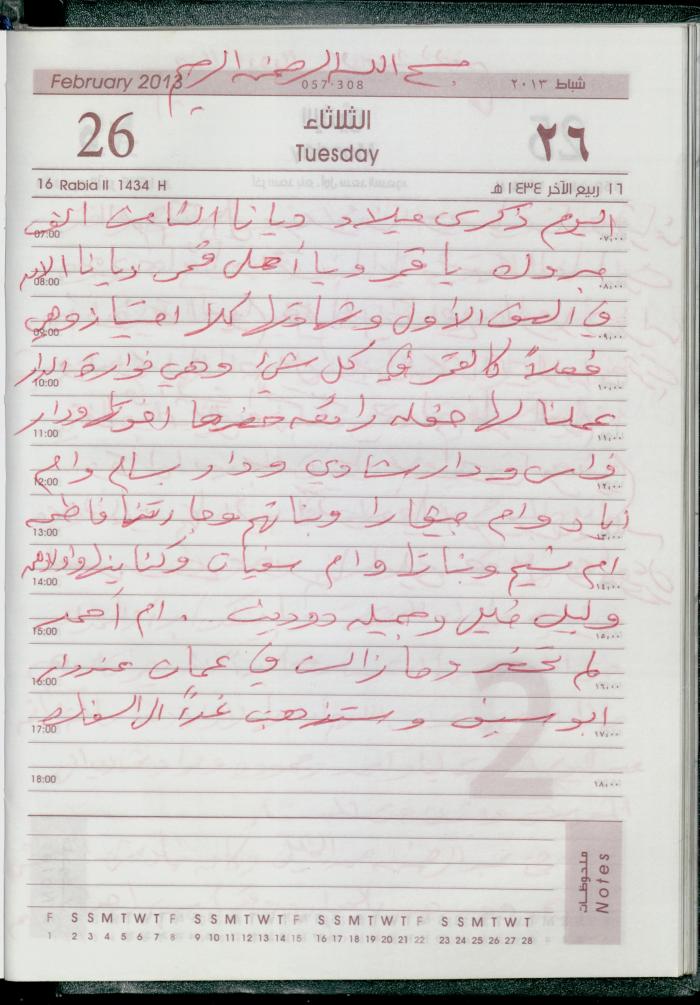 بسم الله الرحمن الرحيم
February 2013 057-308 شباط ٢٠١٣
26 الثلاثاء ٢٦
Tuesday
16 Rabia II 1434 H ١٦ ربيع الآخر ١٤٣٤ هـ
اليوم ذكرى ميلاد ديانا الثامن الف
07:00 ٠٧,٠٠
مبروك يا قمر ويا أهل قمر ديانا الان
08:00 ٠٨,٠٠
في الصف الأول وشهادتها كلا امتياز وهي
09:00 ٠٩,٠٠
فعلاً كالقمر في كل شيء وهي فوارة الدار
10:00 ١٠,٠٠
عملنا لها حفله رائعه حضرها ودار
11:00 ١١,٠٠
فراس ودار شادي ودار بسام وام
12:00 ١٢,٠٠
زياد وام وبناتهم وجارتنا فاطمه
13:00 ١٣,٠٠
ام شيم وبناتها وام سفيان وكناينها واولادهم
14:00 ١٤,٠٠
وجميله ام أحمد
15:00 ١٥,٠٠
لم تحضر وما زالت في عمان عند دار
16:00 ١٦,٠٠
ابو سيف وستذهب غداً الى السفارة
17:00 ١٧,٠٠
18:00 ١٨,٠٠
2
ملحوظات
Notes
F S S M T W T F S S M T W T F S S M T W T F S S M T W T
1 2 3 4 5 6 7 8 9 10 11 12 13 14 15 16 17 18 19 20 21 22 23 24 25 26 27 28